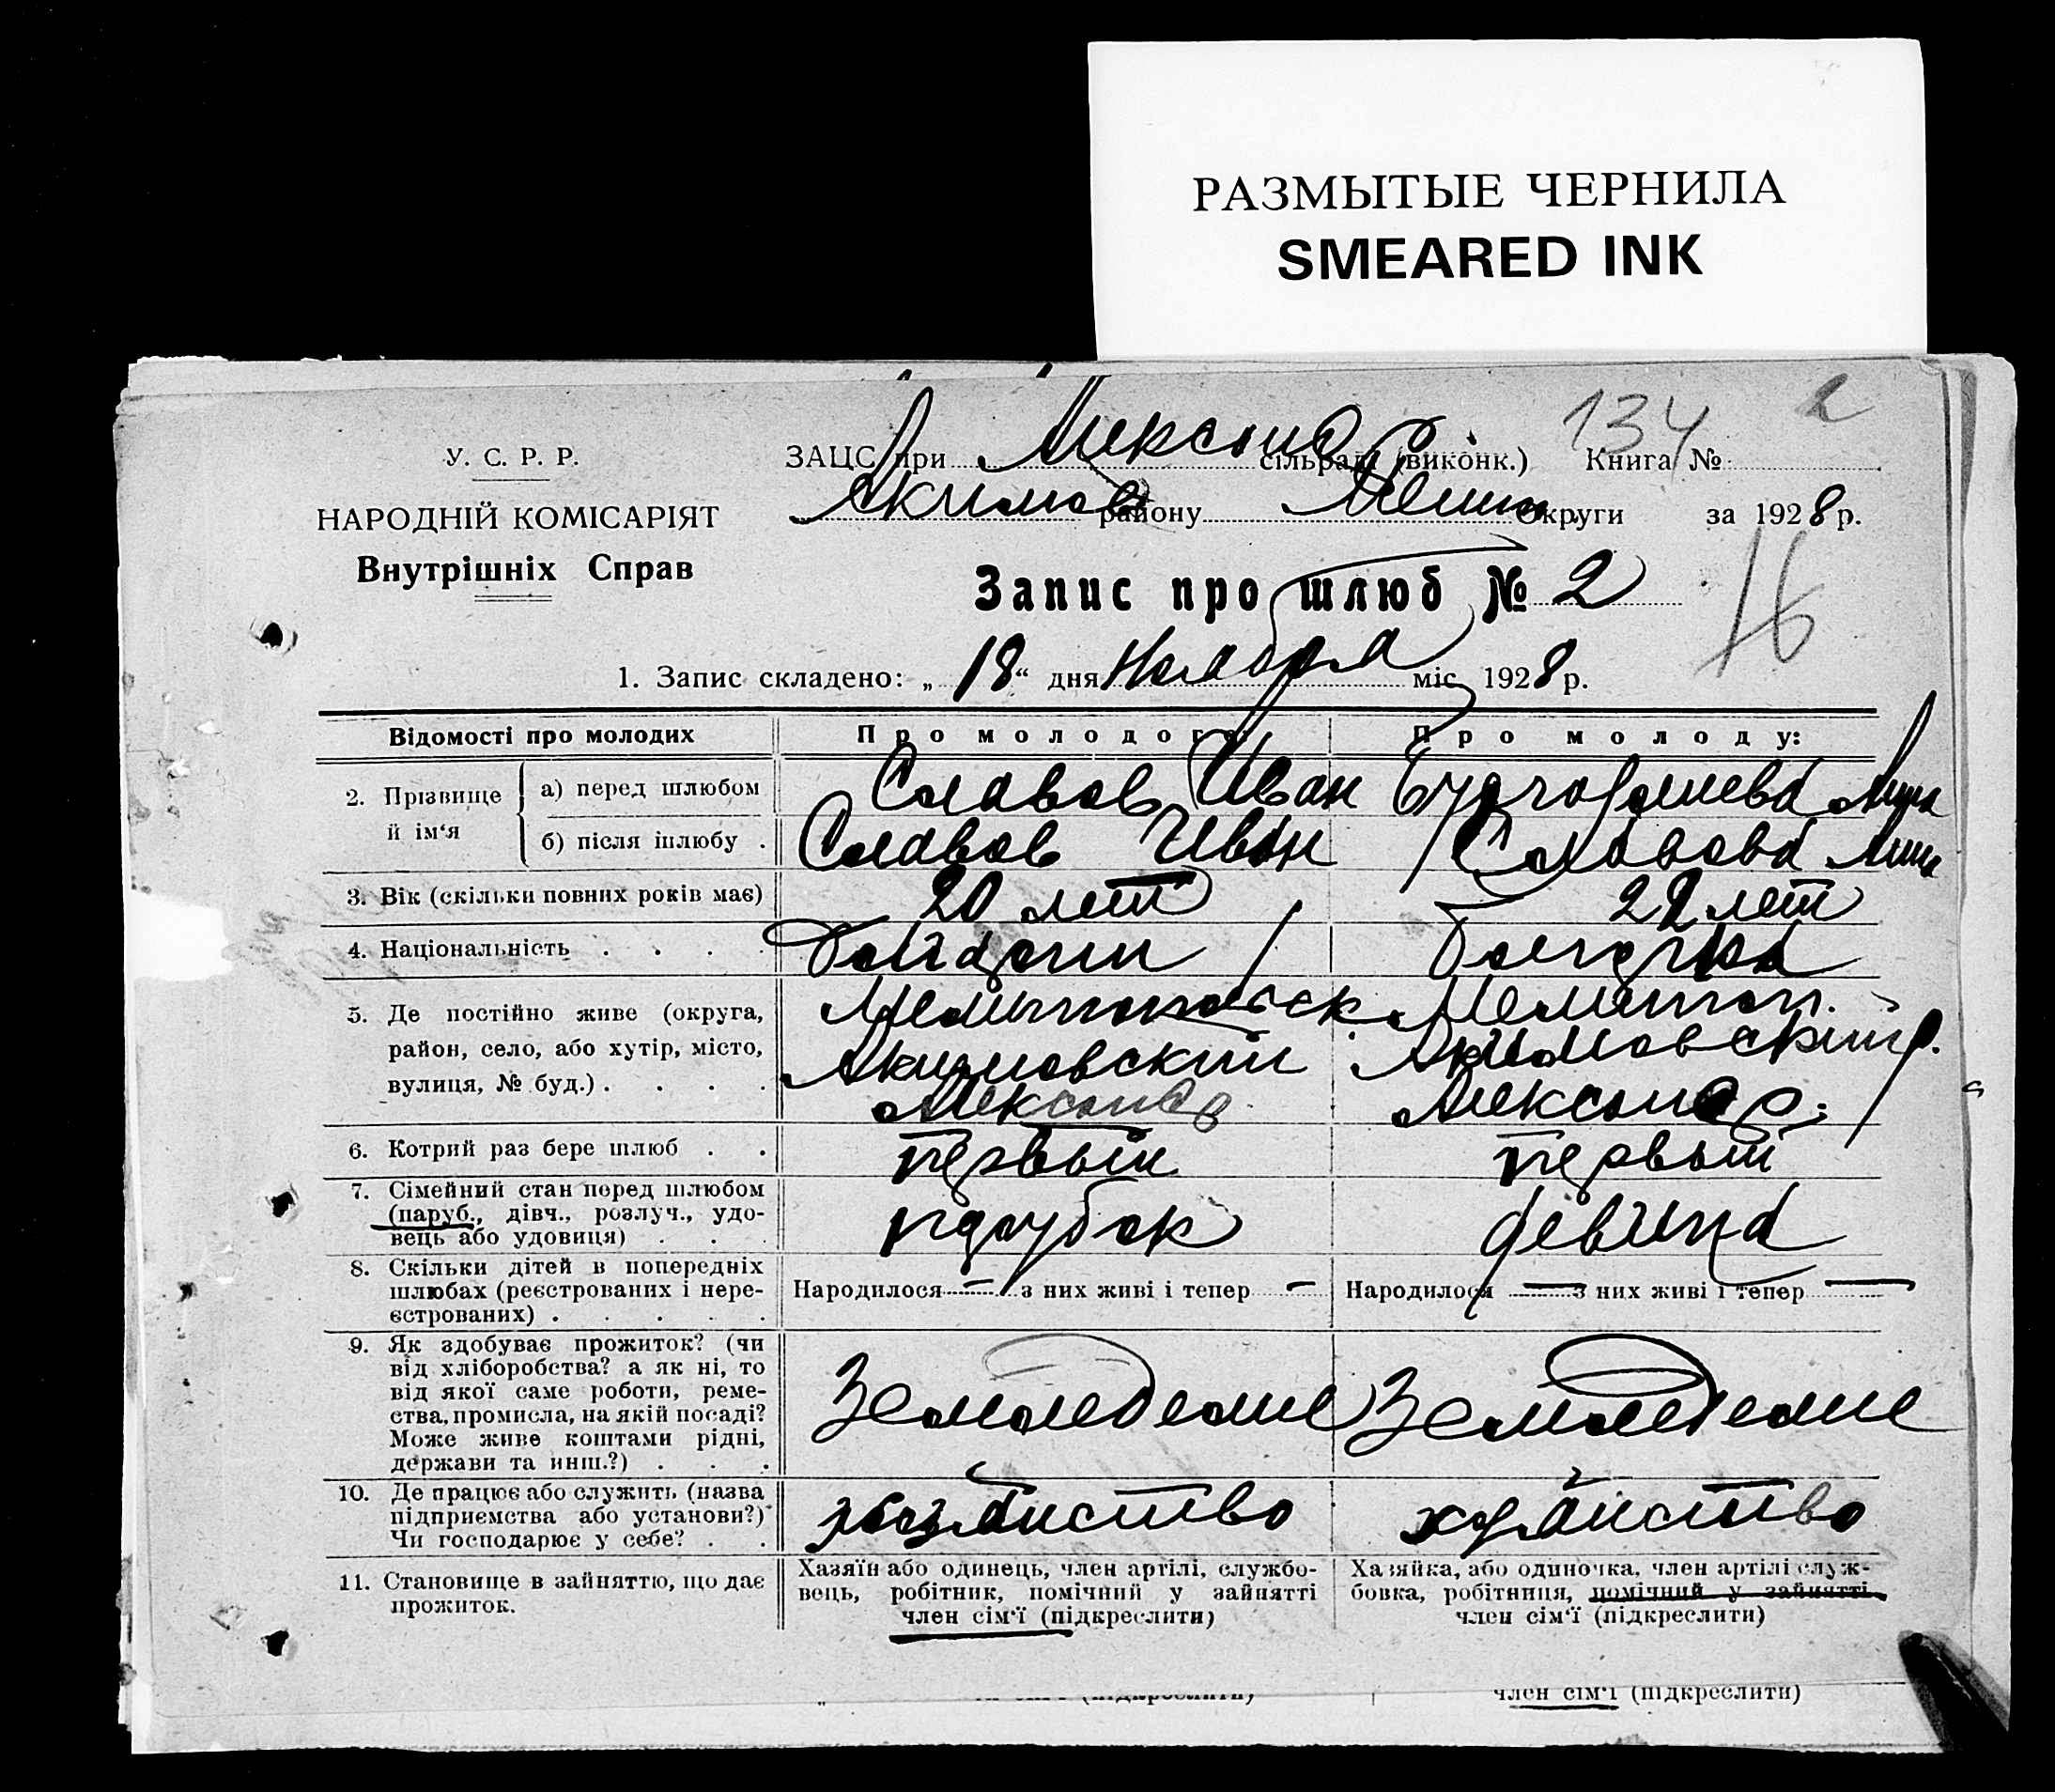 РАЗМЫТЫЕ ЧЕРНИЛА
SMEARED INK
134
У. С. Р. Р.
НАРОДНІЙ КОМІСАРІЯТ
Внутрішніх Справ
ЗАЦС при Алексано сільраді (виконк.) Книга №
Акимов району Мелит округи за 1928 р.
Запис про шлюб № 2
16
1. Запис складено: „18“ дня Ноября міс 1928 р.
Відомості про молодих Про молодого: Про молоду:
2. Прізвище й ім‘я
а) перед шлюбом Славов Иван
б) після шлюбу . Славов Иван Славова
3. Вік (скільки повних років має) 20 лет 22 лет
4. Національність . . . . Болгарин Болгарка
5. Де постійно живе (округа, район, село, або хутір, місто, вулиця, № буд.) . . . .
Мелитопольск Мелитоп.
Акимовский Акимовский р.
Александр Александр.
6. Котрий раз бере шлюб . . первый первый
7. Сімейний стан перед шлюбом (паруб., дівч., розлуч., удовець або удовиця) . . . парубок девица
8. Скільки дітей в попередніх шлюбах (реєстрованих і нереєстрованих) . . . . .
Народилося — з них живі і тепер — Народилося — з них живі і тепер —
9. Як здобуває прожиток? (чи від хліборобства? а як ні, то від якої саме роботи, ремества, промисла, на якій посаді? Може живе коштами рідні, держави та инш.?) . . .
Земледелие Земледелие
10. Де працює або служить (назва підприємства або установи?) Чи господарює у себе? . .
хозяйство хозяйство
11. Становище в зайняттю, що дає прожиток.
Хазяїн або одинець, член артілі, службовець, робітник, помічний у зайнятті член сім‘ї (підкреслити)
Хазяйка, або одиночка, член артілі службовка, робітниця, помічний у зайнятті член сім‘ї (підкреслити)
член сім‘ї (підкреслити)